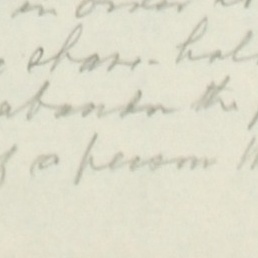 an order
share-hol
abandon the
of a person